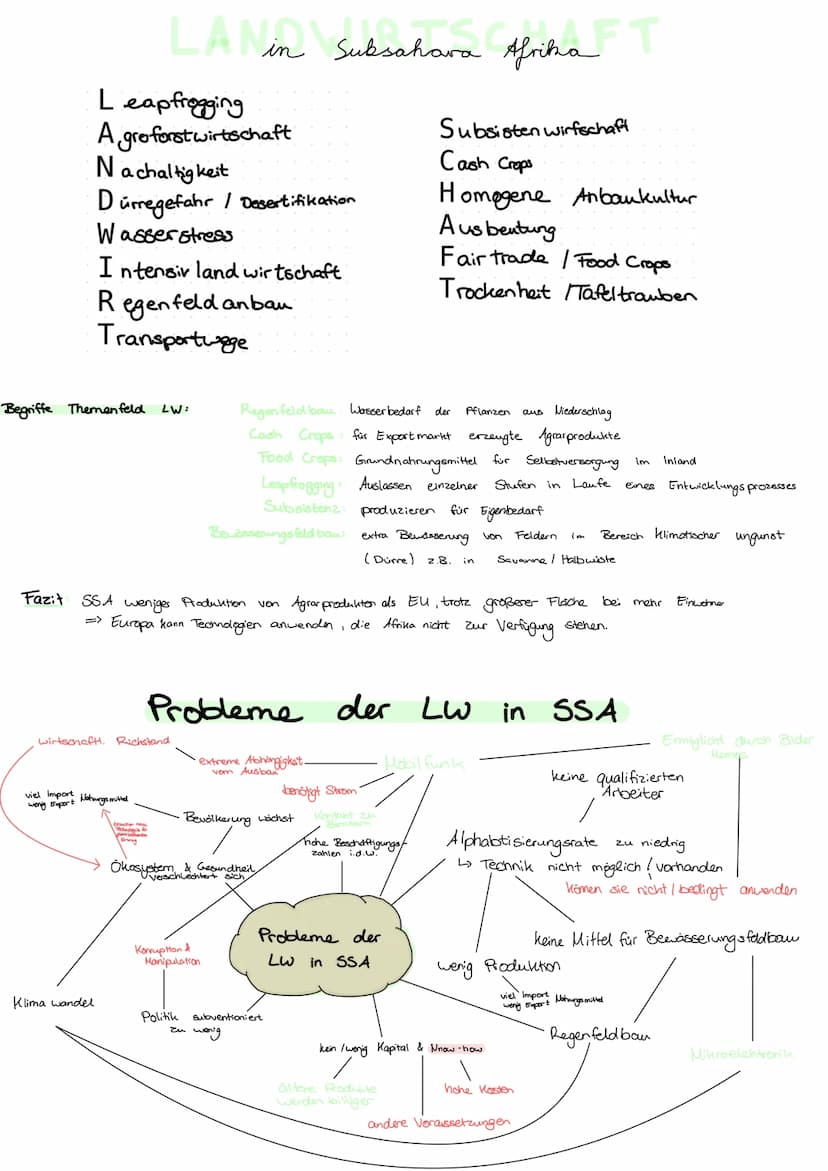 LANDWIRTSCHAFT
in Subsahara Afrika
Leapfrogging
Agroforstwirtschaft
Nachaltigkeit
Dürregefahr / Desertifikation
Wasserstress
Intensivlandwirtschaft
Regenfeldanbau
Transportwege
Subsistenwirtschaft
Cash Crops
Homogene Anbaukultur
Ausbeutung
Fairtrade / Food Crops
Trockenheit / Tafeltrauben
Begriffe Themenfeld LW:
Regenfeldbau: Wasserbedarf der Pflanzen aus Niederschlag
Cash Crops: für Exportmarkt erzeugte Agrarprodukte
Food Crops: Grundnahrungsmittel für Selbstversorgung im Inland
Leapfrogging: Auslassen einzelner Stufen in Laufe eines Entwicklungsprozesses
Subsistenz: produzieren für Eigenbedarf
Bewässerungsfeldbau: extra Bewässerung von Feldern im Bereich klimatischer ungunst
(Dürre) z.B. in Savanne / Halbwüste
Fazit SSA weniges Produktion von Agrarprodukten als EU, trotz größerer Fläche bei mehr
=> Europa kann Technologien anwenden, die Afrika nicht zur Verfügung stehen.
Probleme der LW in SSA
wirtschaftl. Rückstand
extreme Abhängigkeit
vom Ausbau
Mobilfunk
Ermöglicht durch Bilder
benötigt Strom
keine qualifizierten
Arbeiter
viel Import Nahrungsmittel
wenig Export
Bevölkerung wächst
Kontakt zu
hohe Beschäftigungs-
zahlen i.d.LW.
Alphabtisierungsrate zu niedrig
↳ Technik nicht möglich / vorhanden
können sie nicht / bedingt anwenden
Ökosystem & Gesundheit
verschlechtert sich
Probleme der
LW in SSA
keine Mittel für Bewässerungsfeldbau
Korruption &
Manipulation
wenig Produktion
viel Import Nahrungsmittel
wenig Export
Klima wandel
Politik subventioniert
zu wenig
Regenfeldbau
kein / wenig Kapital & Know-how
Mikroelektronik
ältere Produkte
werden billiger
hohe Kosten
andere Voraussetzungen